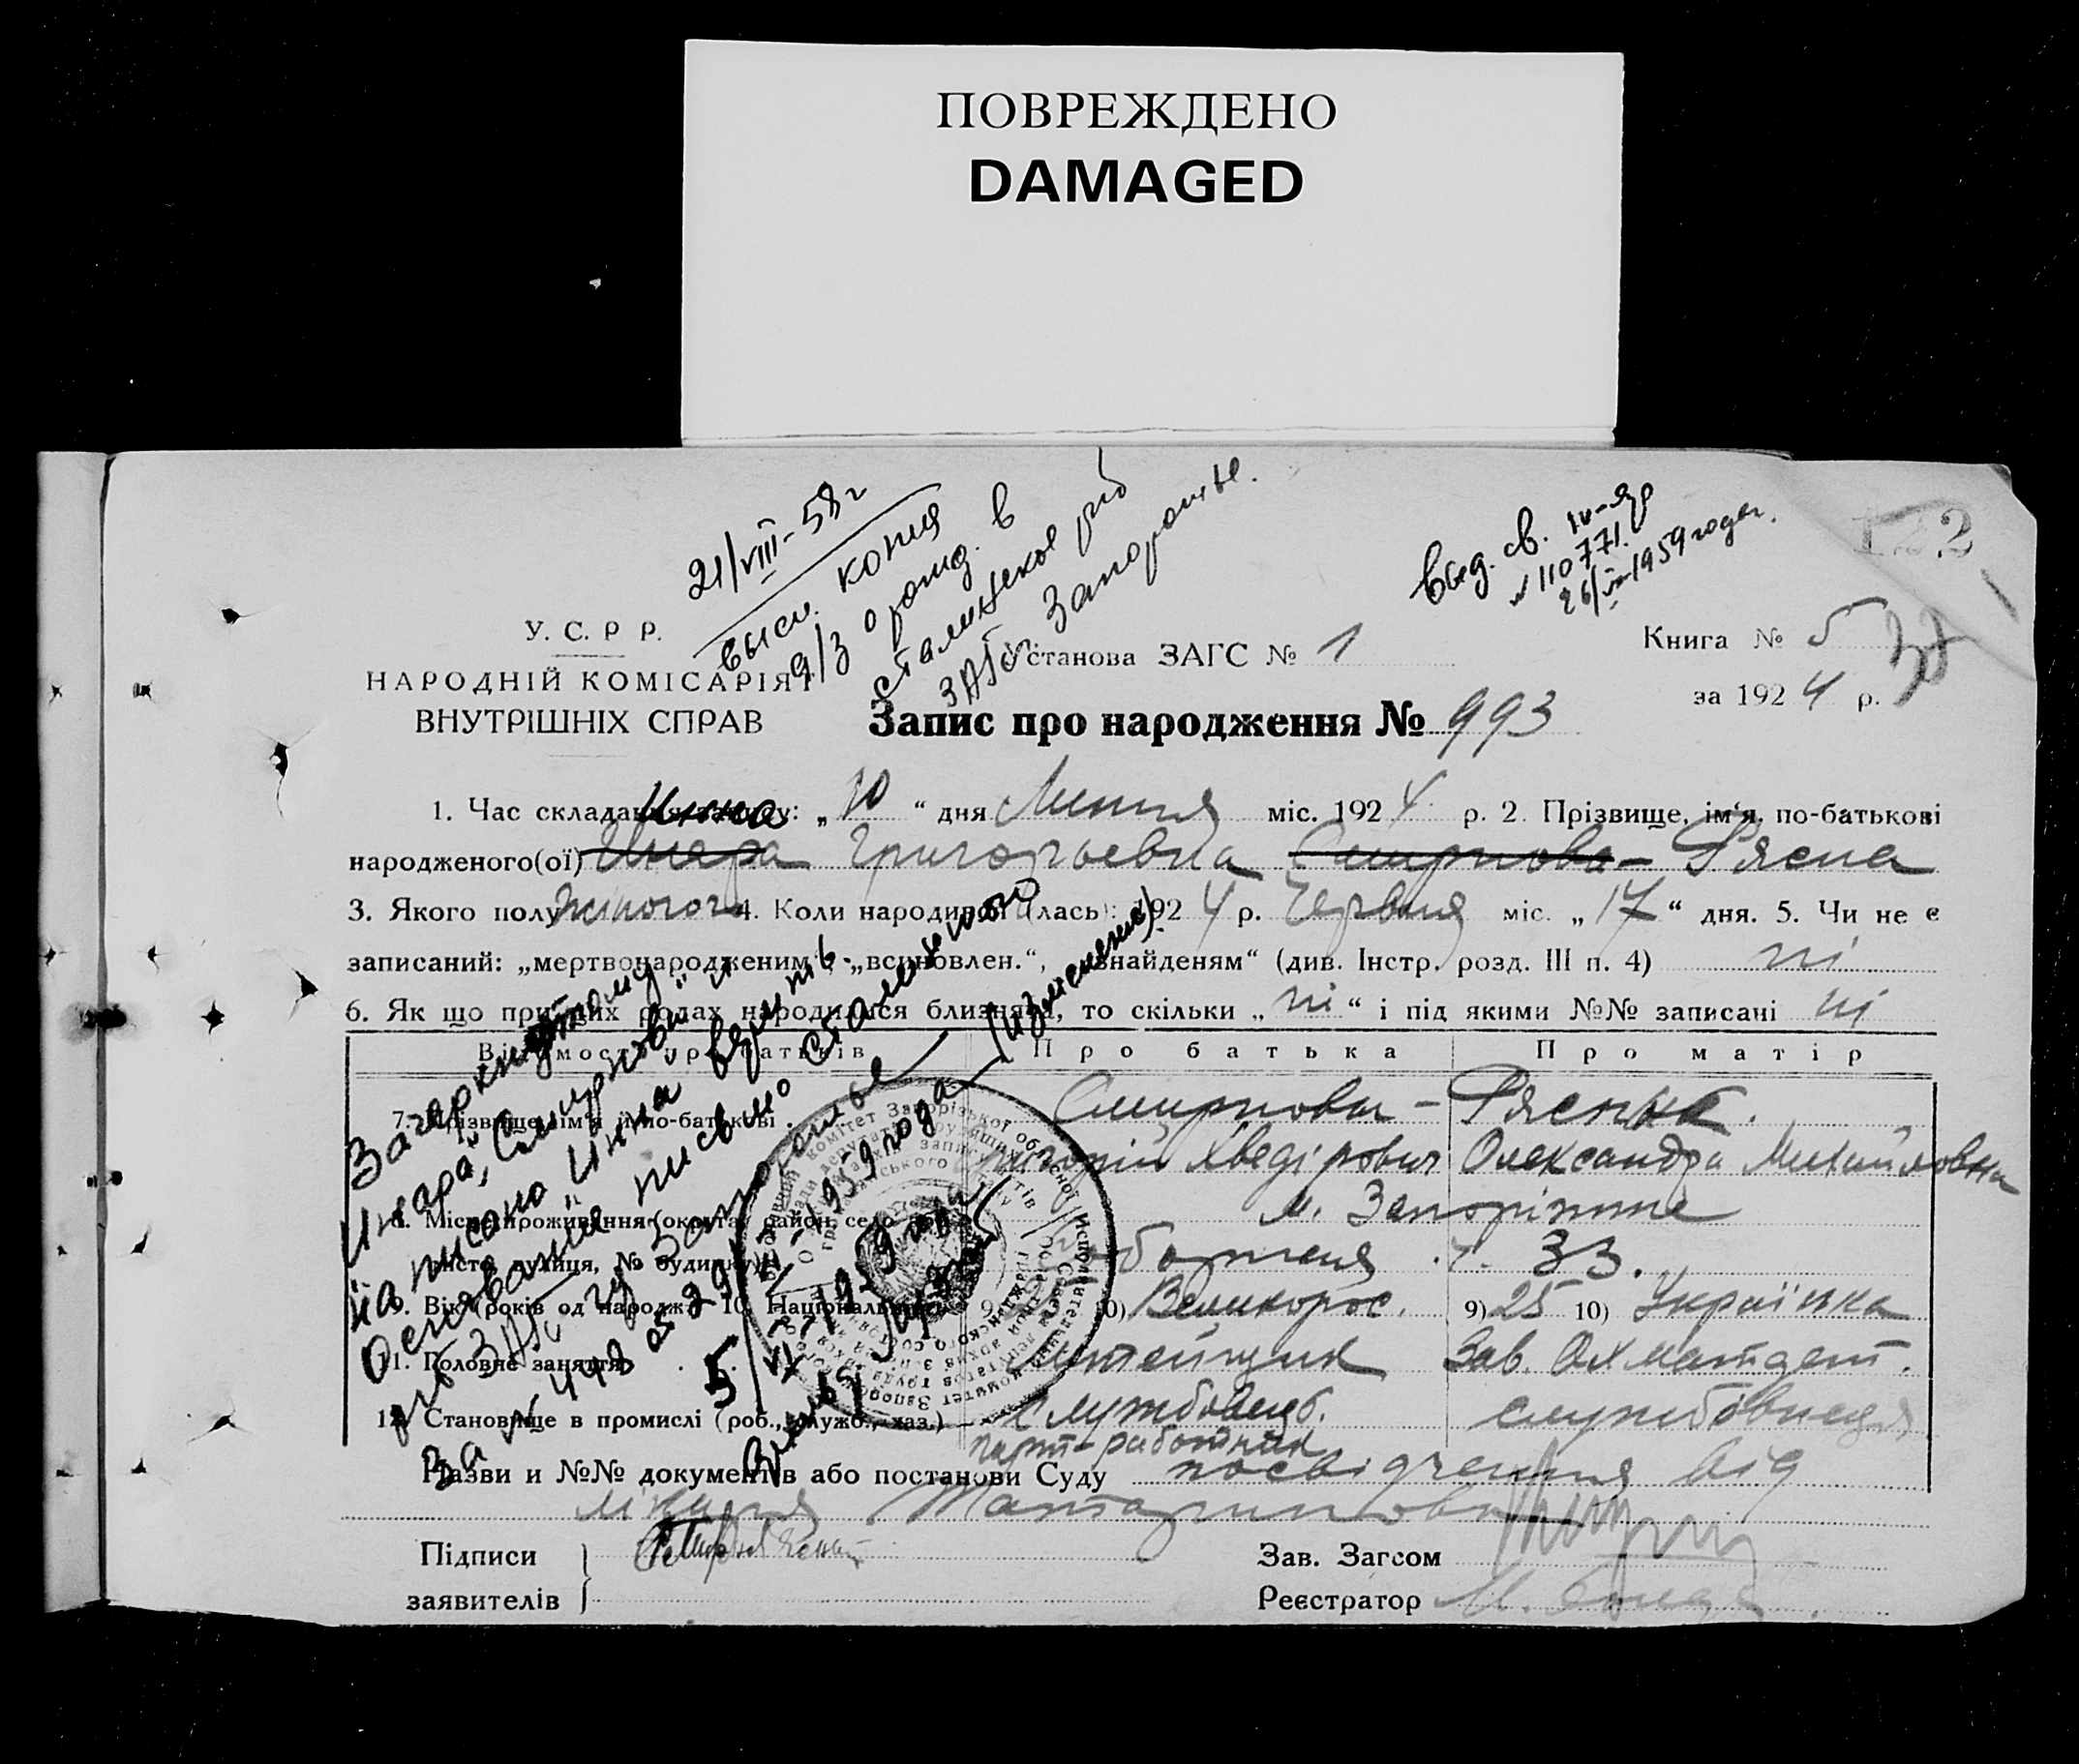 ПОВРЕЖДЕНО
DAMAGED
21/VIII-58 г
высл. копия
а/з о рожд. в
сталинское р/б
ЗАГС Запорожье.
Выд. св. IV-ЯР
№ 110771.
26/VIII 1959 года.
122
У. С. Р Р.
НАРОДНІЙ КОМІСАРІЯТ
ВНУТРІШНІХ СПРАВ
Установа ЗАГС № 1
Книга № 5
за 1924 р.
Запис про народження № 993
Инна
1. Час складання запису: „10“ дня Липня міс. 1924 р. 2. Прізвище, ім'я, по-батькові
народженого(ої) Инара Григорьевна Смирнова-Рясна
3. Якого полу жіночого 4. Коли народився (лась): 1924 р. Червня міс. „17“ дня. 5. Чи не є
записаний: „мертвонародженим“, „всиновлен.“, „знайденям“ (див. Інстр. розд. III п. 4) ні
6. Як що при цих родах народилися близнята, то скільки „ні“ і під якими №№ записані ні
Відомості про батьків Про батька Про матір
7. Прізвище, ім'я і по-батькові Смирнови - Рясна.
Григорій Хведірович Олександра Михайловна
8. Місце проживання (округа, район, село
м. Запоріжжє
місто, вулиця, № будинку) 33.
9. Вік (років од народж.) 10. Національність 9) 10) Великорос. 9) 25 10) Українка
11. Головне заняття Зав. Охматдет.
12. Становище в промислі (роб., служб., хаз.) Службовець. службовиця
парт-работник
Назви и №№ документів або постанови Суду посвідчення від
Підписи
заявителів
Зав. Загсом
Реєстратор М.
Зачеркнутому
„Инара“, „Смирнова“ и
написано „Инна“ верить.
Основание письмо сталинского
р/б ЗАГС гу Запорожье
за № 448 от 29/ 1959 года (изменение)
5/VI-1959 года